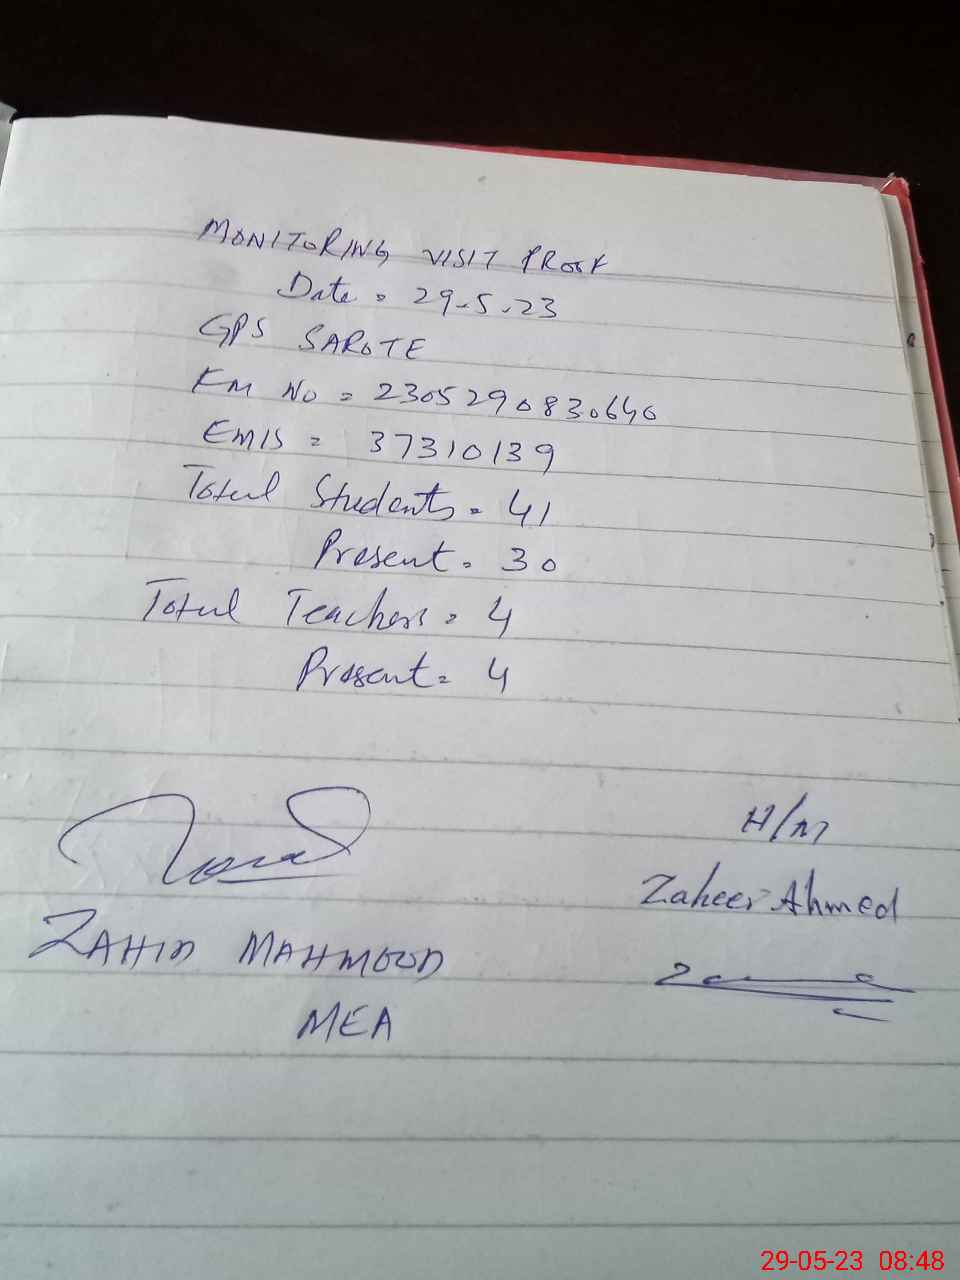 MONITORING VISIT PROOF
Date = 29-5-23
GPS SAROTE
KM No = 2305290830640
EMIS = 37310139
Total Students = 41
Present = 30
Total Teachers = 4
Present = 4
H/M
Zaheer Ahmed
ZAHID MAHMOOD
MEA
29-05-23 08:48